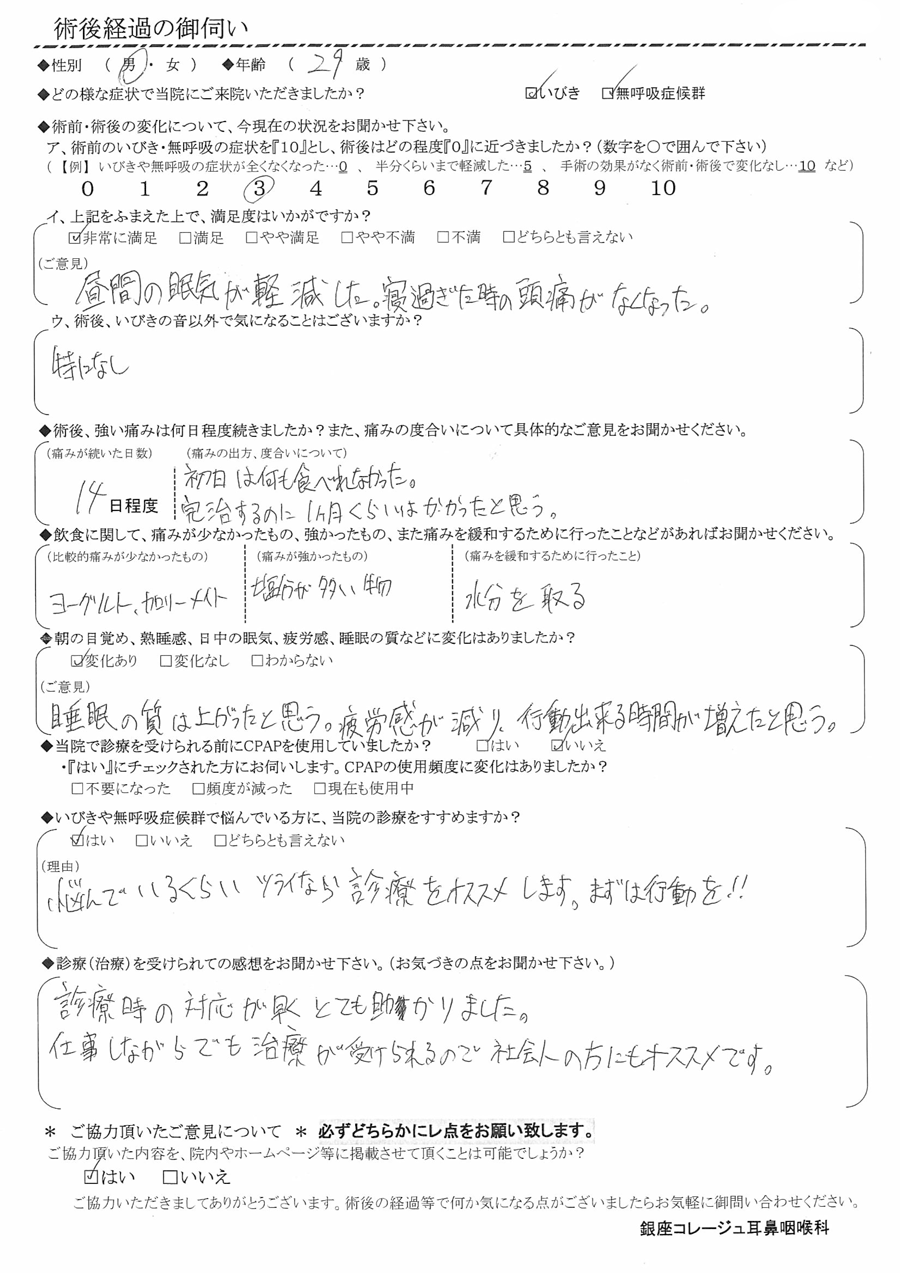 術後経過の御伺い
◆性別 ( 男 ・ 女 ) ◆年齢 ( 29 歳 )
◆どの様な症状で当院にご来院いただきましたか? ☑いびき ☑無呼吸症候群
◆術前・術後の変化について、今現在の状況をお聞かせ下さい。
ア、術前のいびき・無呼吸の症状を『10』とし、術後はどの程度『0』に近づきましたか?(数字を○で囲んで下さい)
(【例】いびきや無呼吸の症状が全くなくなった…0 、 半分くらいまで軽減した…5 、 手術の効果がなく術前・術後で変化なし…10 など)
0 1 2 3 4 5 6 7 8 9 10
イ、上記をふまえた上で、満足度はいかがですか?
☑非常に満足 □満足 □やや満足 □やや不満 □不満 □どちらとも言えない
(ご意見)
昼間の眠気が軽減した。寝過ぎた時の頭痛がなくなった。
ウ、術後、いびきの音以外で気になることはございますか?
特になし
◆術後、強い痛みは何日程度続きましたか?また、痛みの度合いについて具体的なご意見をお聞かせください。
(痛みが続いた日数) (痛みの出方、度合いについて)
初日は何も食べれなかった。
14 日程度 完治するのに1ヶ月くらいはかかったと思う。
◆飲食に関して、痛みが少なかったもの、強かったもの、また痛みを緩和するために行ったことなどがあればお聞かせください。
(比較的痛みが少なかったもの) (痛みが強かったもの) (痛みを緩和するために行ったこと)
ヨーグルト、カロリーメイト 塩分が多い物 水分を取る
◆朝の目覚め、熟睡感、日中の眠気、疲労感、睡眠の質などに変化はありましたか?
☑変化あり □変化なし □わからない
(ご意見)
睡眠の質は上がったと思う。疲労感が減り、行動出来る時間が増えたと思う。
◆当院で診療を受けられる前にCPAPを使用していましたか? □はい ☑いいえ
・『はい』にチェックされた方にお伺いします。CPAPの使用頻度に変化はありましたか?
□不要になった □頻度が減った □現在も使用中
◆いびきや無呼吸症候群で悩んでいる方に、当院の診療をすすめますか?
☑はい □いいえ □どちらとも言えない
(理由)
悩んでいるくらいツライなら診療をオススメします。まずは行動を!!
◆診療(治療)を受けられての感想をお聞かせ下さい。(お気づきの点をお聞かせ下さい。)
診療時の対応が早くとても助かりました。
仕事しながらでも治療が受けられるので社会人の方にもオススメです。
* ご協力頂いたご意見について * 必ずどちらかにレ点をお願い致します。
ご協力頂いた内容を、院内やホームページ等に掲載させて頂くことは可能でしょうか?
☑はい □いいえ
ご協力いただきましてありがとうございます。術後の経過等で何か気になる点がございましたらお気軽に御問い合わせください。
銀座コレージュ耳鼻咽喉科